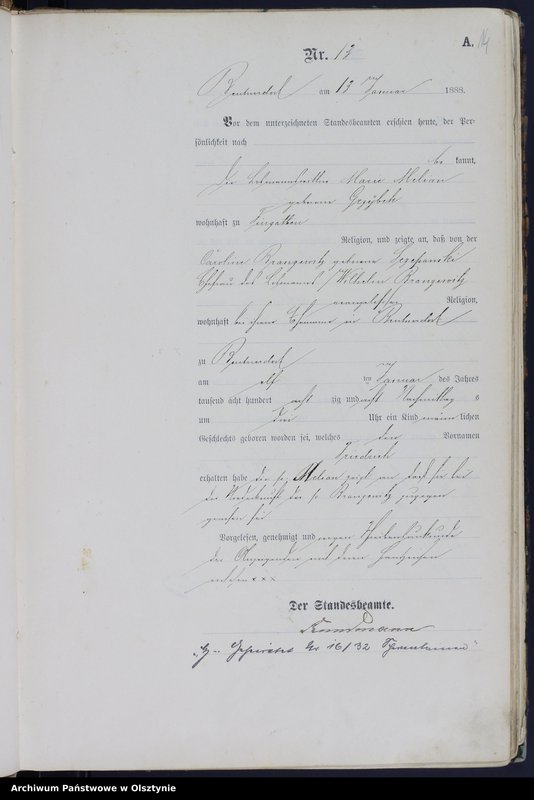 A. 14
Nr. 13
am 13 Januar 1888.
Vor dem unterzeichneten Standesbeamten erschien heute, der Per-
sönlichkeit nach
be kannt,
Die Marie Melian
geborene Grzybek
wohnhaft zu
Religion, und zeigte an, daß von der
Caroline Brangewitz geborene Szczepanski
Ehefrau des Wilhelm Brangewitz
evangelischer Religion,
wohnhaft bei ihrem Ehemann in
zu
am elf ten Januar des Jahres
tausend acht hundert acht zig und acht Nachmittag s
um drei Uhr ein Kind männ lichen
Geschlechts geboren worden sei, welches den Vornamen
Friedrich
erhalten habe die p. Melian zeigt an daß sie bei
der Niederkunft der p. Brangewitz zugegen
gewesen sei
Vorgelesen, genehmigt und wegen
der mit deren Handzeichen
versehen x x x
Der Standesbeamte.
Nr 16/32
Archiwum Państwowe w Olsztynie